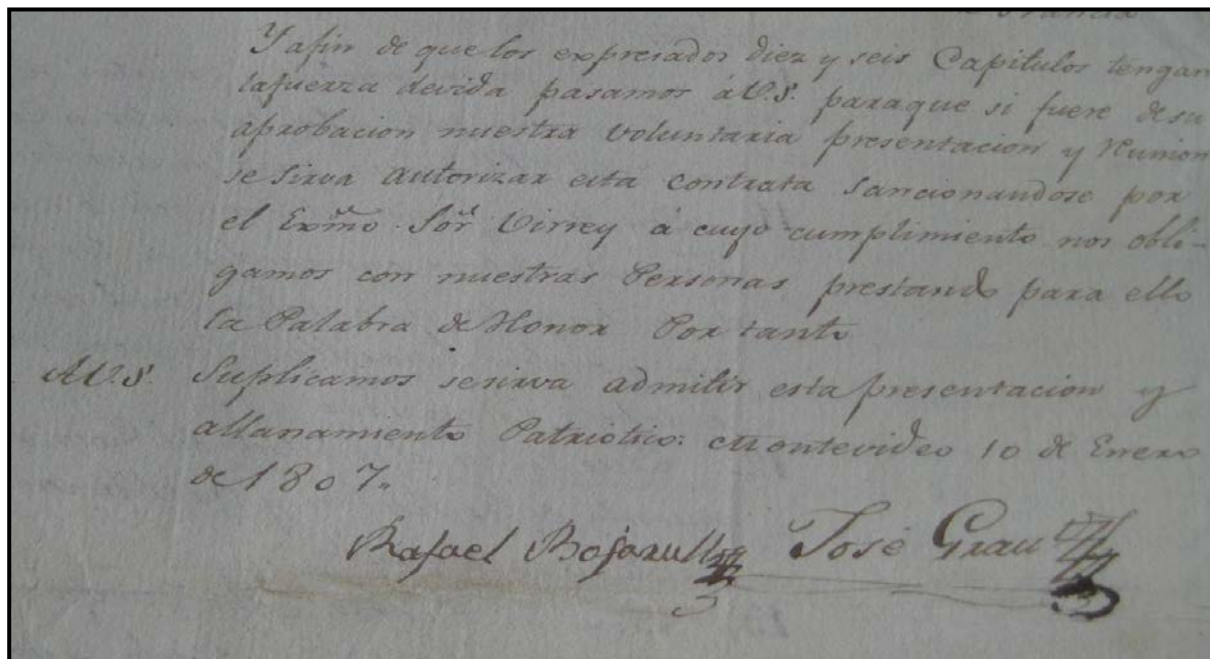 de Francia
Y afin de que los expresados diez y seis Capitulos tengan
lafuerza devida pasamos áV.S. paraque si fuere desu
aprobacion nuestra voluntaria presentacion y Reunion
se sirva autorizar esta contrata sancionandose por
el Exmo. Sor. Virrey á cuyo cumplimiento nos obli-
gamos con nuestras Personas prestando para ello
la Palabra de Honor Por tanto
AV.S. Suplicamos sesirva admitir esta presentacion y
allanamiento Patriotico. Montevideo 10 de Enero
de 1807.
Rafael Bofarull José Grau